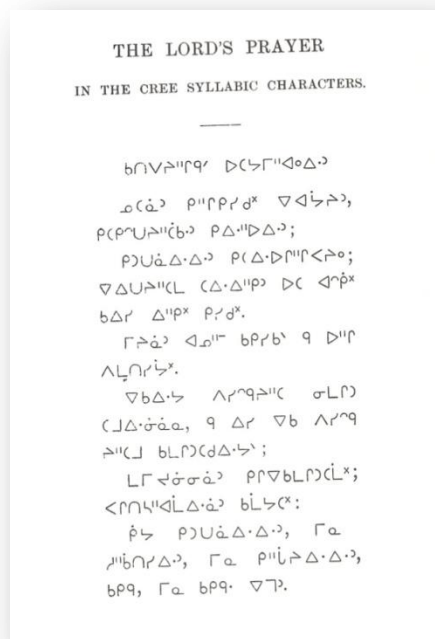 THE LORD'S PRAYER
IN THE CREE SYLLABIC CHARACTERS.
ᑲᑎᐯᔨᐦᒋᑫᐟ ᐅᑕᔭᒥᐦᐊᐤᐃᐧᐣ
ᓄᑕᓈᐣ ᑭᐦᒋᑭᓯᑯᕽ ᐁᐊᔮᔨᐣ,
ᑭᑕᑭᐢᑌᔨᐦᑖᑲᐧᐣ ᑭᐃᐧᐦᐅᐃᐧᐣ;
ᑭᑐᑌᓈᐃᐧᐃᐧᐣ ᑭᑕᐃᐧᐅᒋᐦᒋᐸᔨᐤ;
ᐁᐃᑌᔨᐦᑕᒪ ᑕᐃᐧᐃᐧᐦᑭᐣ ᐅᑕ ᐊᐢᑮᕽ
ᑲᐃᓯ ᐃᐦᑭᕽ ᑭᓯᑯᕽ.
ᒥᔨᓈᐣ ᐊᓄᐦᐨ ᑲᑭᓯᑲᐠ ᑫ ᐅᐦᒋ
ᐱᒫᑎᓯᔮᕽ.
ᐁᑲᐃᐧᔭ ᐱᓯᐢᑫᔨᐦᑕ ᓂᒪᒋᑐ
ᑕᒧᐃᐧᓃᓈᓇ, ᑫ ᐃᓯ ᐁᑲ ᐱᓯᐢᑫ
ᔨᐦᑕᒧ ᑲᒪᒋᑐᑕᑯᐃᐧᔭᐠ;
ᒪᒥ ᔫᓂᓂᓈᐣ ᑭᒋᐁᑲᒪᒋᑐᑕᒫᕽ;
ᐸᓯᑎᓴᐦᐊᒫᐃᐧᓈᐣ ᑲᒫᔭᑕᕽ:
ᑮᔭ ᑭᑐᑌᓈᐃᐧᐃᐧᐣ, ᒥᓇ
ᓱᐦᑳᑎᓯᐃᐧᐣ, ᒥᓇ ᑭᐦᒑᔨᐃᐧᐃᐧᐣ,
ᑲᑭᑫ, ᒥᓇ ᑲᑭᑫᐧ ᐁᒣᐣ.